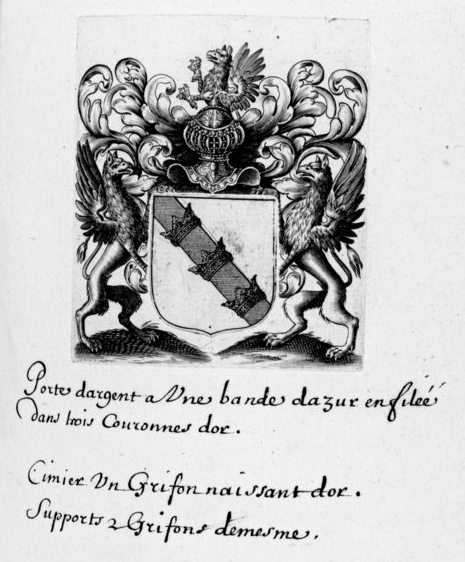 Porte dargent a Vne bande dazur enfileé
dans trois Couronnes dor.
Cimier Vn Grifon naissant dor.
Supports 2 Grifons demesme.